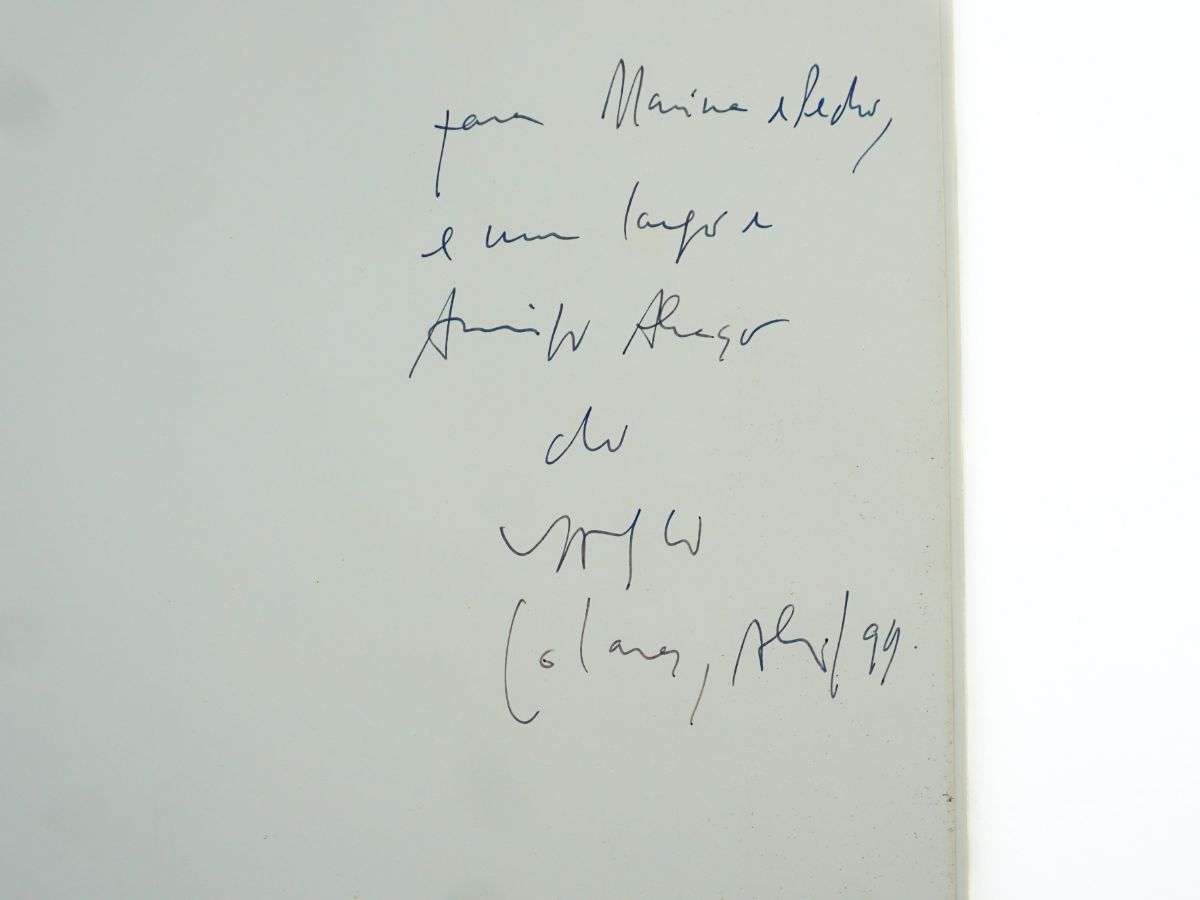 para Marina e Pedro,
e um largo e
Amigo Abraço
do
Colares, Abril/99.